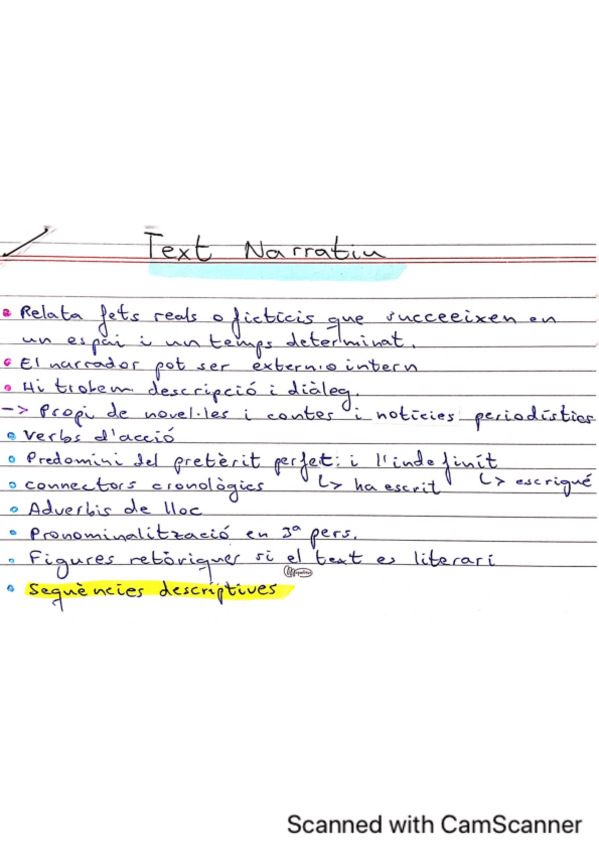 Text Narratiu
• Relata fets reals o ficticis que succeeixen en
un espai i un temps determinat.
• El narrador pot ser extern o intern
• Hi trobem descripció i diàleg.
-> Propi de novel·les i contes i notícies periodístics
• Verbs d'acció
• Predomini del pretèrit perfet: i l'indefinit
• connectors cronològics ↳ ha escrit ↳ escrigué
• Adverbis de lloc
• Pronominalització en 3ª pers.
• Figures retòriques si el text es literari
• Seqüències descriptives
Scanned with CamScanner